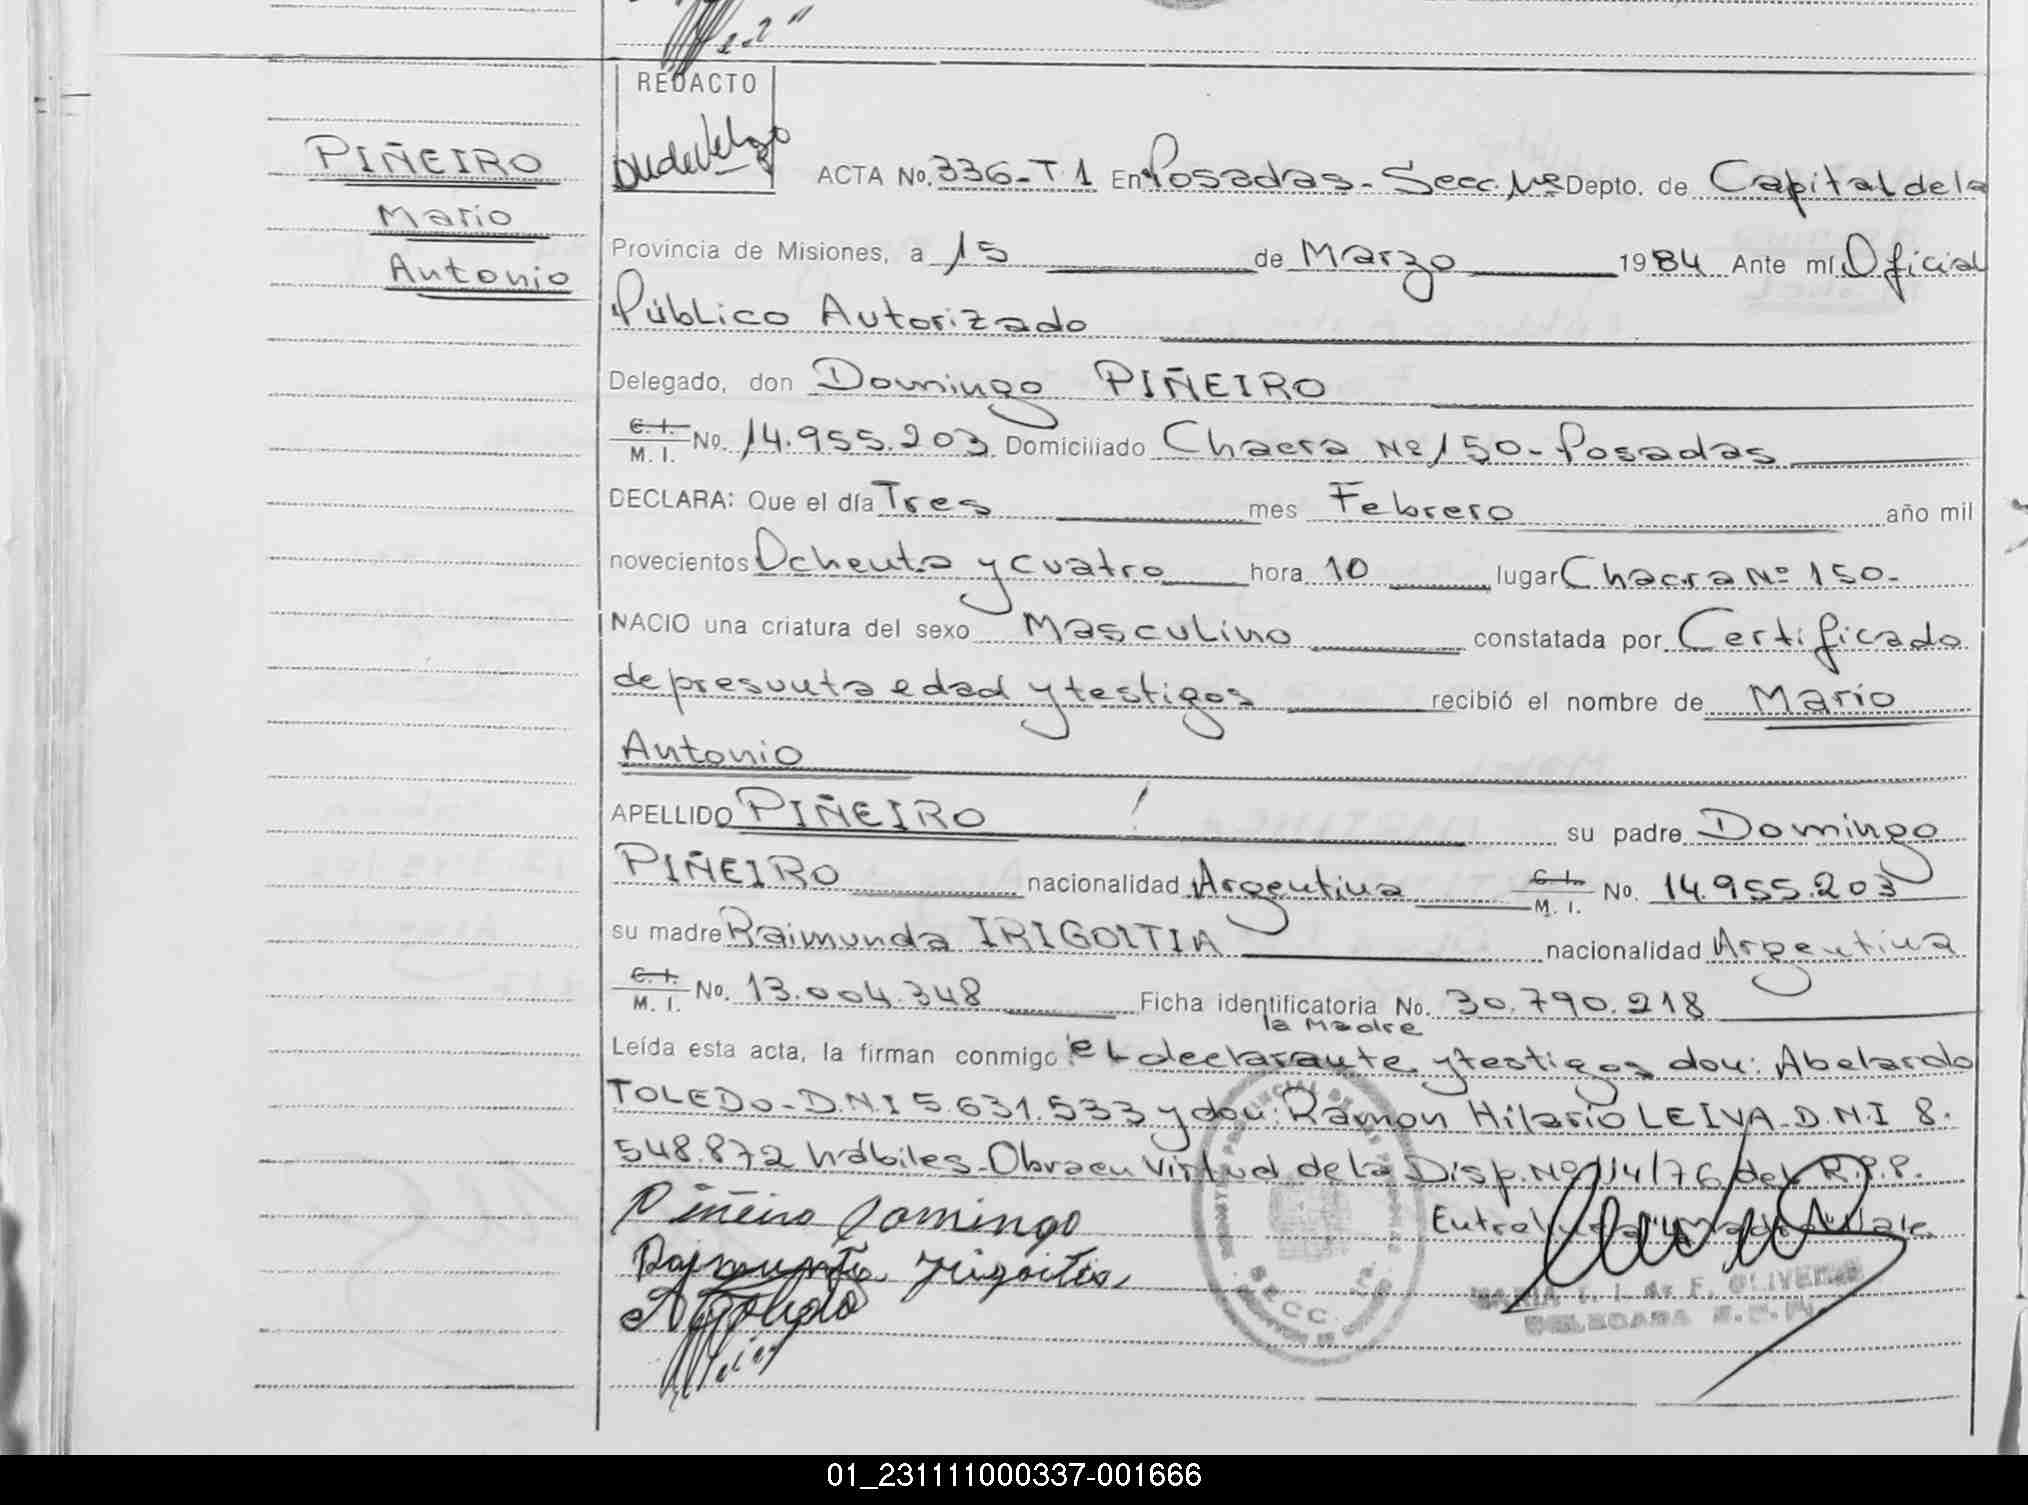 REDACTO
PIÑEIRO
Mario
Antonio
ACTA No. 336-T.1 En Posadas - Secc. 1ra Depto. de Capital de la
Provincia de Misiones, a 15 de Marzo 1984 Ante mí, Oficial
Público Autorizado
Delegado, don Domingo PIÑEIRO
C. I.
M. I. No. 14.955.203 Domiciliado Chacra Nº 150 - Posadas
DECLARA: Que el día Tres mes Febrero año mil
novecientos Ochenta y cuatro hora 10 lugar Chacra Nº 150-
NACIO una criatura del sexo Masculino constatada por Certificado
de presunta edad y testigos recibió el nombre de Mario
Antonio
APELLIDO PIÑEIRO su padre Domingo
PIÑEIRO nacionalidad Argentina C. I. M. I. No. 14.955.203
su madre Raimunda IRIGOITIA nacionalidad Argentina
C. I.
M. I. No. 13.004.348 Ficha identificatoria No. 30.790.218
la Madre
Leída esta acta, la firman conmigo el declarante y testigos don: Abelardo
TOLEDO - D.N.I 5.631.533 y don: Ramon Hilario LEIVA - D.N.I 8.
548.872 hábiles - Obra en virtud de la Disp. Nº 114/76 del R.P.P.
Piñeiro Domingo
Entrelínea "la Madre" Vale.
Raimunda Irigoitia
SECC.
DELEGADA
01_231111000337-001666